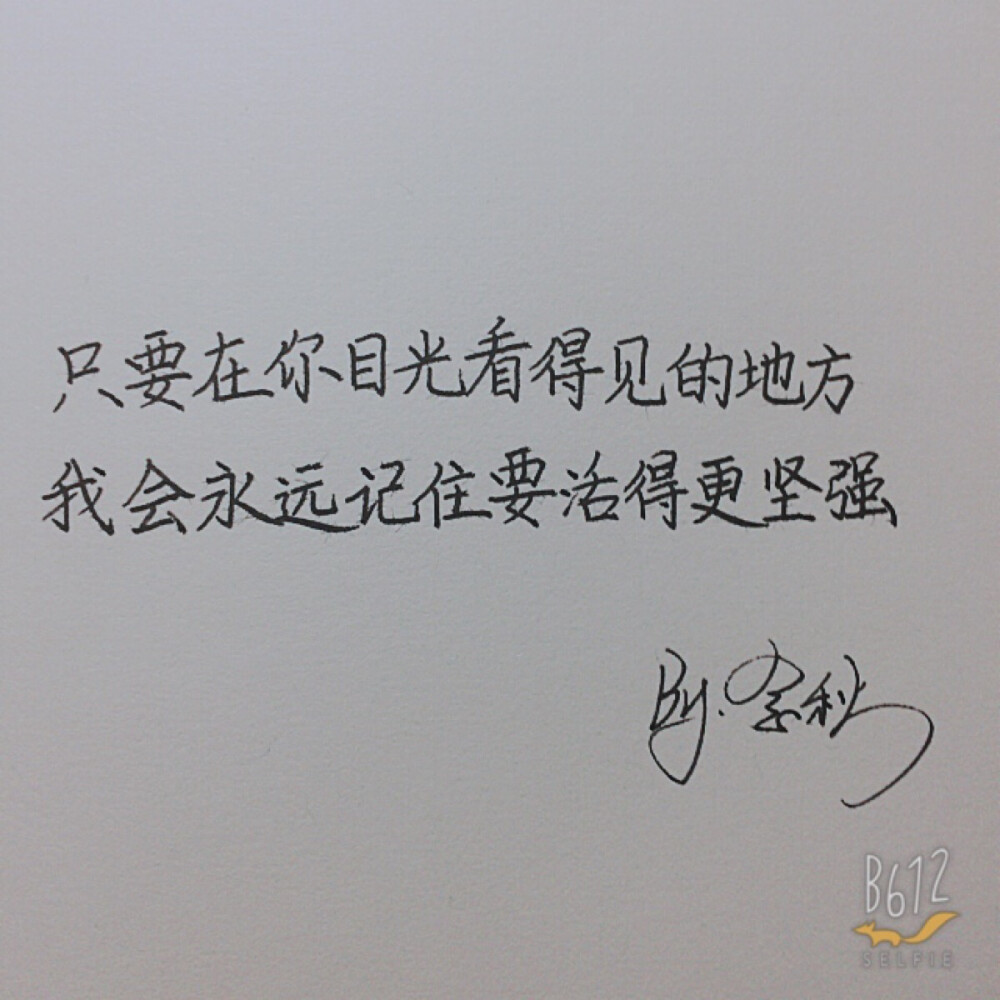 只要在你目光看得见的地方
我会永远记住要活得更坚强
By.
B612
SELFIE